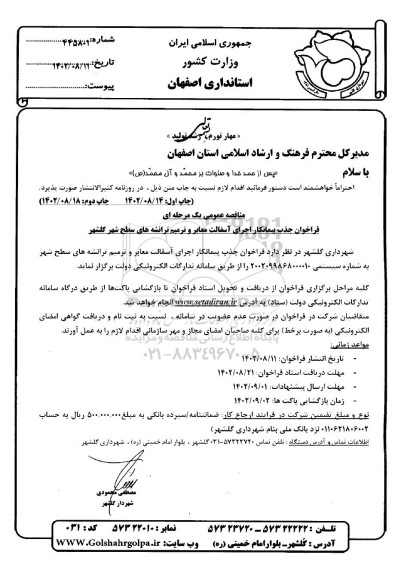 جمهوری اسلامی ایران
وزارت کشور
استانداری اصفهان
شماره: ۴۴۵۸۰۹
تاریخ: ۱۴۰۲/۰۸/۱۱
پیوست:
« مهار تورم، رشد تولید »
مدیرکل محترم فرهنگ و ارشاد اسلامی استان اصفهان
با سلام
«پس از حمد خدا و صلوات بر محمد و آل محمد(ص)»
احتراماً خواهشمند است دستور فرمائید اقدام لازم نسبت به چاپ متن ذیل ، در روزنامه کثیرالانتشار صورت پذیرد.
(چاپ اول: ۱۴۰۲/۰۸/۱۴ چاپ دوم: ۱۴۰۲/۰۸/۱۸)
مناقصه عمومی یک مرحله ای
فراخوان جذب پیمانکار اجرای آسفالت معابر و ترمیم ترانشه های سطح شهر گلشهر
شهرداری گلشهر در نظر دارد فراخوان جذب پیمانکار اجرای آسفالت معابر و ترمیم ترانشه های سطح شهر
به شماره سیستمی ۲۰۰۲۰۹۹۸۶۸۰۰۰۰۱۰ را از طریق سامانه تدارکات الکترونیکی دولت برگزار نماید.
کلیه مراحل برگزاری فراخوان از دریافت و تحویل اسناد فراخوان تا بازگشایی پاکت‌ها از طریق درگاه سامانه
تدارکات الکترونیکی دولت (ستاد) به آدرس www.setadiran.ir انجام خواهد شد.
متقاضیان شرکت در فراخوان در صورت عدم عضویت در سامانه ، نسبت به ثبت نام و دریافت گواهی امضای
الکترونیکی (به صورت برخط) برای کلیه صاحبان امضای مجاز و مهر سازمانی اقدام لازم را به عمل آورند.
پایگاه اطلاع رسانی مناقصه و مزایده
۰۲۱-۸۸۳۴۹۶۷۰
مواعد زمانی:
- تاریخ انتشار فراخوان: ۱۴۰۲/۰۸/۱۱
- مهلت دریافت اسناد فراخوان: ۱۴۰۲/۰۸/۲۱
- مهلت ارسال پیشنهادات: ۱۴۰۲/۰۹/۰۱
- زمان بازگشایی پاکت ها: ۱۴۰۲/۰۹/۰۲
نوع و مبلغ تضمین شرکت در فرایند ارجاع کار: ضمانتنامه/سپرده بانکی به مبلغ ۵۰۰.۰۰۰.۰۰۰ ریال به حساب
۰۱۱۰۶۲۱۸۰۶۰۰۲ نزد بانک ملی بنام شهرداری گلشهر)
اطلاعات تماس و آدرس دستگاه : تلفن تماس ۵۷۲۲۳۷۲۰-۰۳۱ گلشهر ، بلوار امام خمینی (ره) ، شهرداری گلشهر
مصطفی محمودی
شهردار گلشهر
تلفن : ۵۷۲۲۲۲۲۲ - ۵۷۲۲۳۷۲۰ نمابر : ۵۷۲۲۲۰۱۰ کد : ۰۳۱
آدرس : گلشهر-بلوار امام خمینی (ره) وب سایت: WWW.Golshahrgolpa.ir